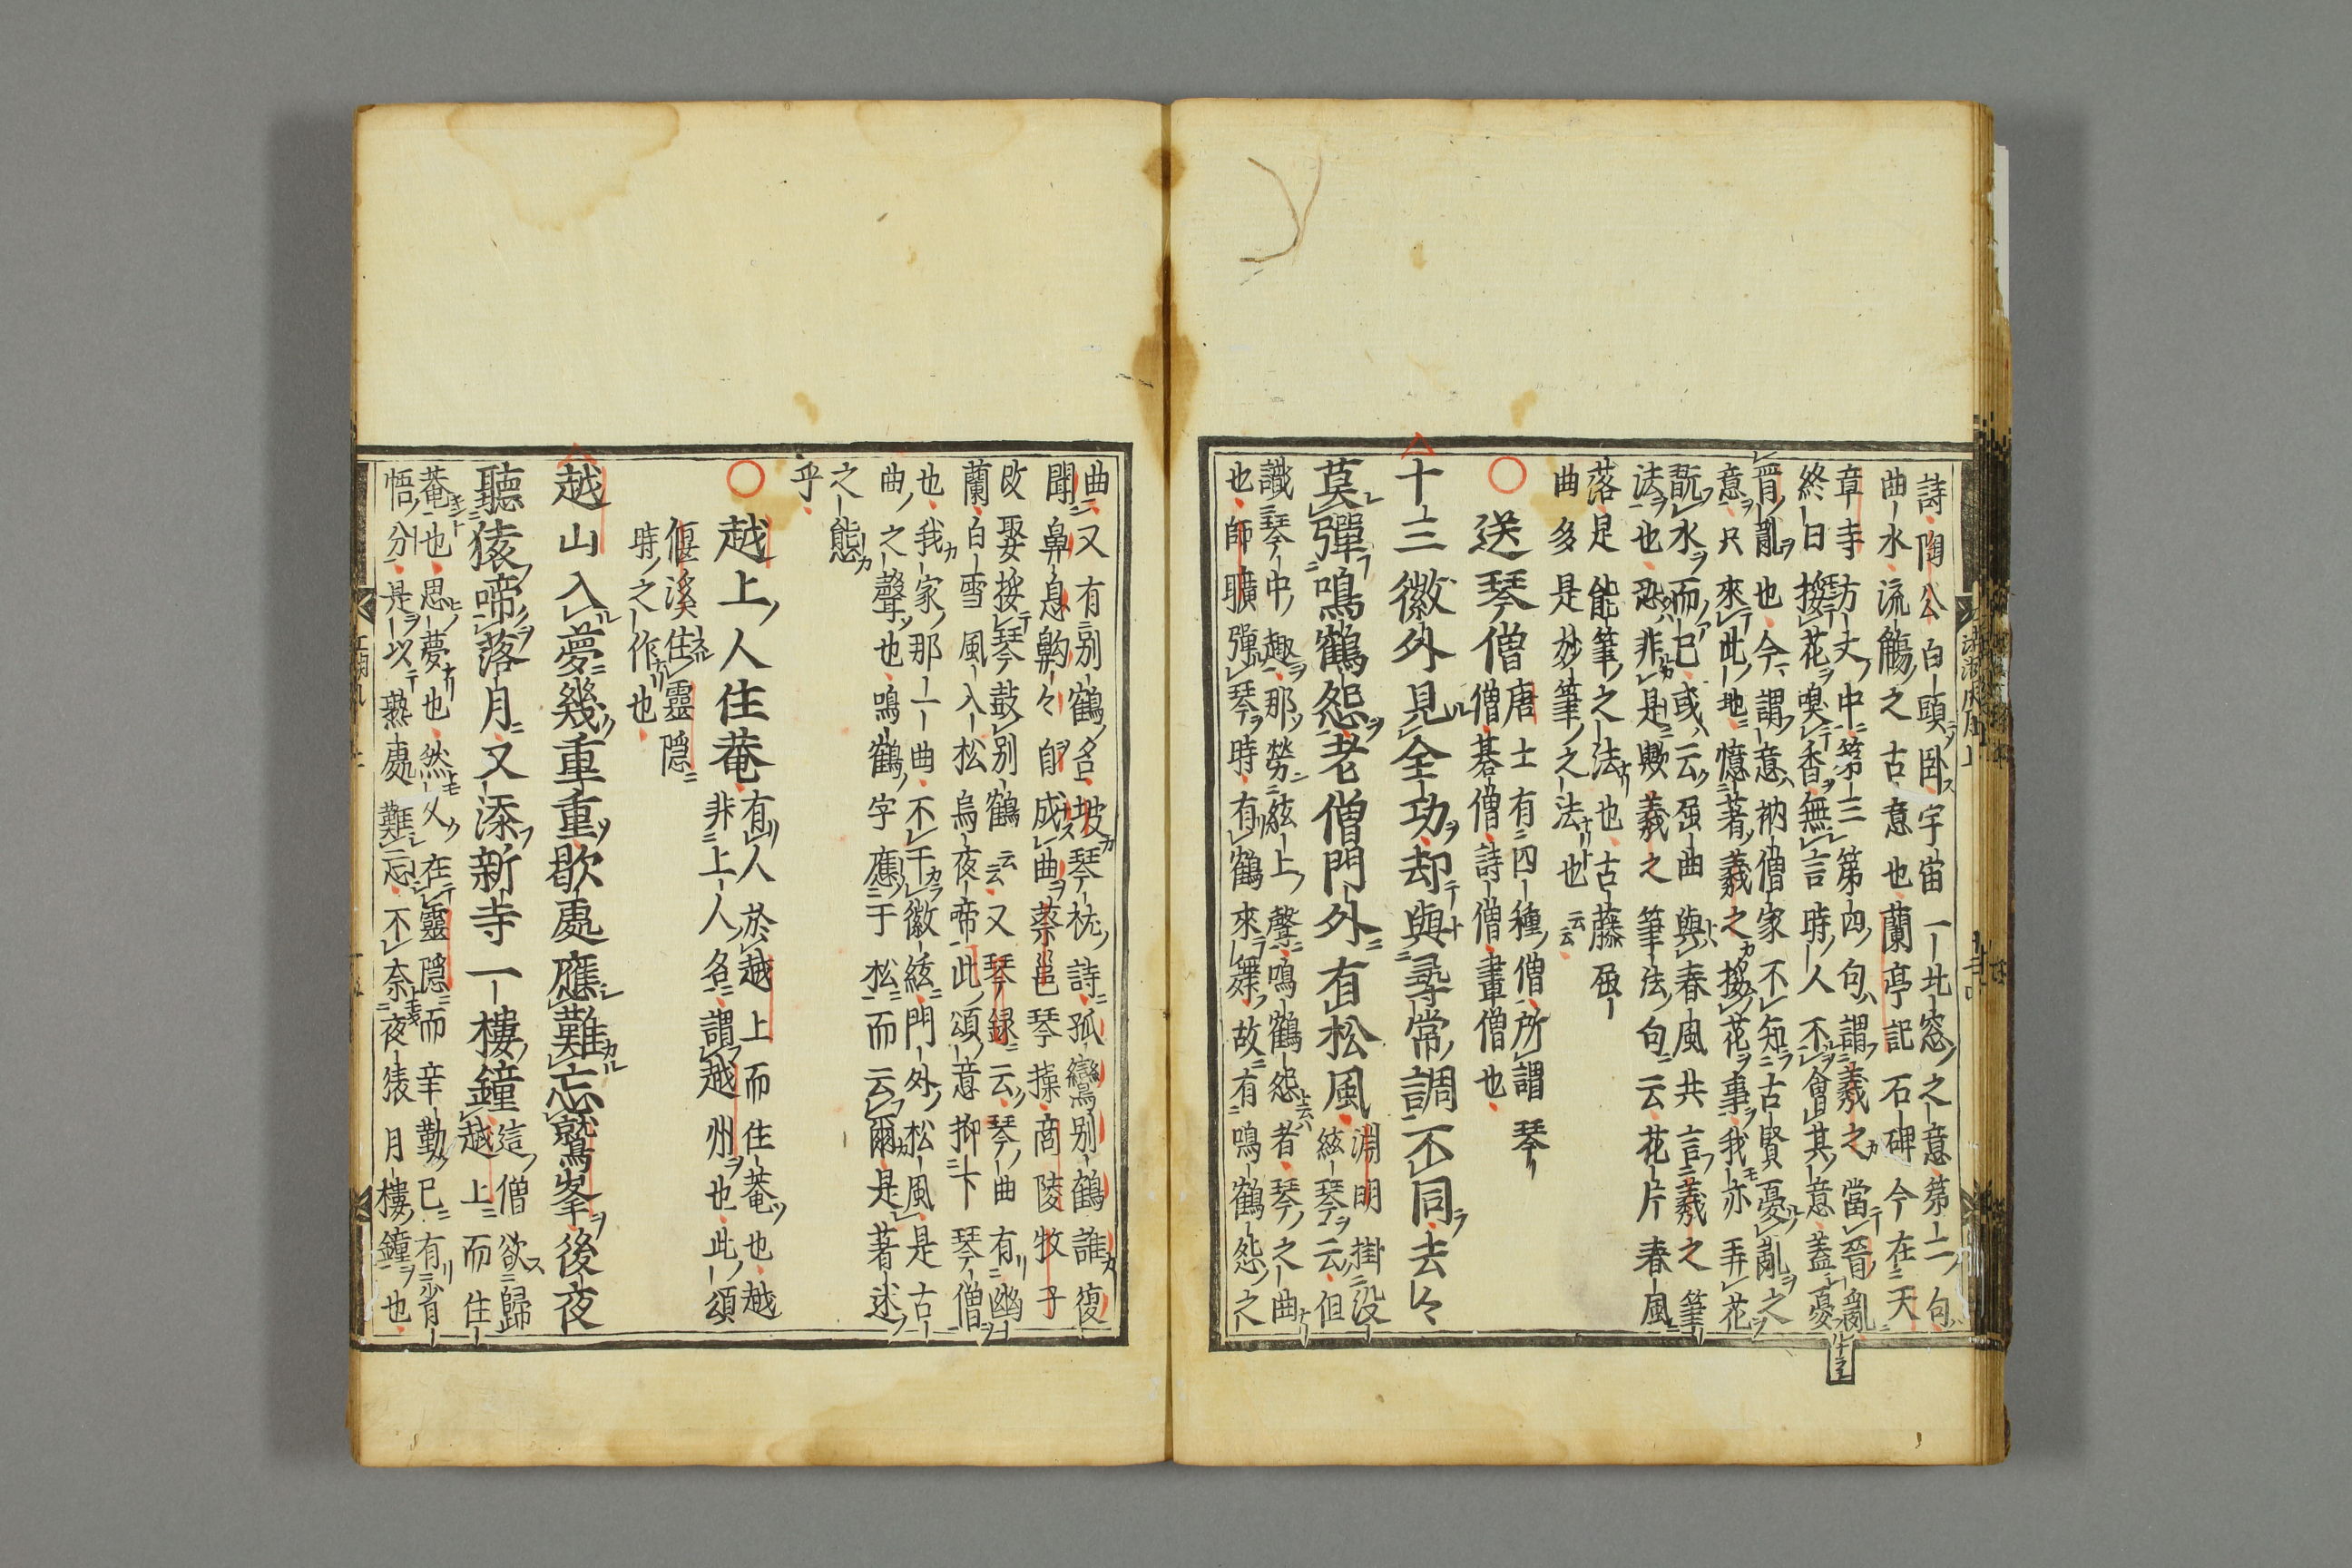 詩陶公白頭臥宇宙一北窓之意第一二句
曲水流觴之古意也蘭亭記石碑今在天
章寺方丈中第三第四句謂羲之當晉亂
終日接花嗅香無言時人不會其意蓋憂
晉亂也今謂意衲僧家不知古賢憂亂之
意只來此地憶著羲之接花事我亦弄花
翫水而已或云强曲與春風共言羲之筆
法也恐非是歟羲之筆法句云花片春風
落是能筆之法也古藤强
曲多是妙筆之法也云云
送琴僧唐士有四種僧所謂琴
僧碁僧詩僧畫僧也
十三徽外見全功却與尋常調不同去々
莫彈鳴鶴怨老僧門外有松風淵明掛沒
絃琴云但
識琴中趣那勞絃上聲鳴鶴怨者琴之曲
也師曠彈琴時有鶴來舞故有鳴鶴怨之
曲又有別鶴名坡琴枕詩孤鸞別鶴誰復
聞鼻息齁々自成曲蔡邕琴操商陵牧子
改娶援琴鼓別鶴云云又琴録云琴曲有幽
蘭白雪風入松烏夜啼此頌意抑卞琴僧
也我家那一曲不干徽絃門外松風是古
曲之聲也鳴鶴字應于松而云爾是著述
之態
乎
越上人住菴有人於越上而住菴也越
非上人名謂越州也此頌
偃溪住靈隠
時之作也
越山入夢幾重重歇處應難忘鷲峯後夜
聽猿啼落月又添新寺一樓鐘這僧欲歸
越上而住
菴也思夢也然又在靈隠而辛勤已有省
悟分是以熟處難忘不奈夜猿月樓鐘也